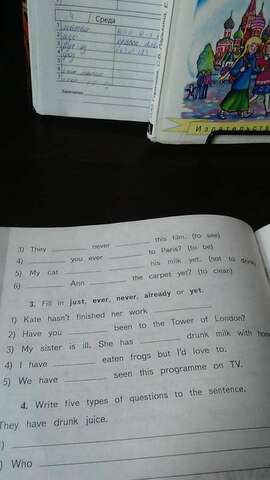 Среда
Издательств
3) They ______ never ______ this film. (to see)
4) ______ you ever ______ to Paris? (to be)
5) My cat ______ ______ his milk yet. (not to drink)
6) ______ Ann ______ the carpet yet? (to clean)
3. Fill in just, ever, never, already or yet.
1) Kate hasn't finished her work ______
2) Have you ______ been to the Tower of London?
3) My sister is ill. She has ______ drunk milk with hone
4) I have ______ eaten frogs but I'd love to.
5) We have ______ seen this programme on TV.
4. Write five types of questions to the sentence.
They have drunk juice.
) Who ______